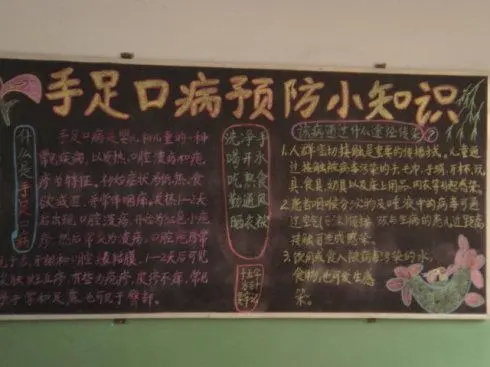 手足口病预防小知识
什么是手足口病
手足口病是婴儿和儿童的一种
常见疾病,以发热、口腔溃疡和疱
疹为特征。初始症状为低热、食
欲减退、并常伴咽痛。发热1-2天
后出现口腔溃疡,开始为红色小疱
疹,然后常变为溃疡。口腔疱疹常
见于舌、牙龈和口腔颊粘膜。1-2天后可见
皮肤斑丘疹,有些为疱疹,皮疹不痒,常见
于手掌和足底,也可见于臀部。
洗净手
喝开水
吃熟食
勤通风
晒衣被
该病通过什么途径传染?
1.人群密切接触是重要的传播方式。儿童通
过接触被病毒污染的手、毛巾、手绢、牙杯、玩
具、食具、奶具以及床上用品、内衣等引起感染。
2.患者咽喉分泌物及唾液中的病毒可通
过空气(飞沫)传播,故与生病的患儿近距离
接触可造成感染。
3.饮用或食入被病毒污染的水、
食物,也可发生感
染。